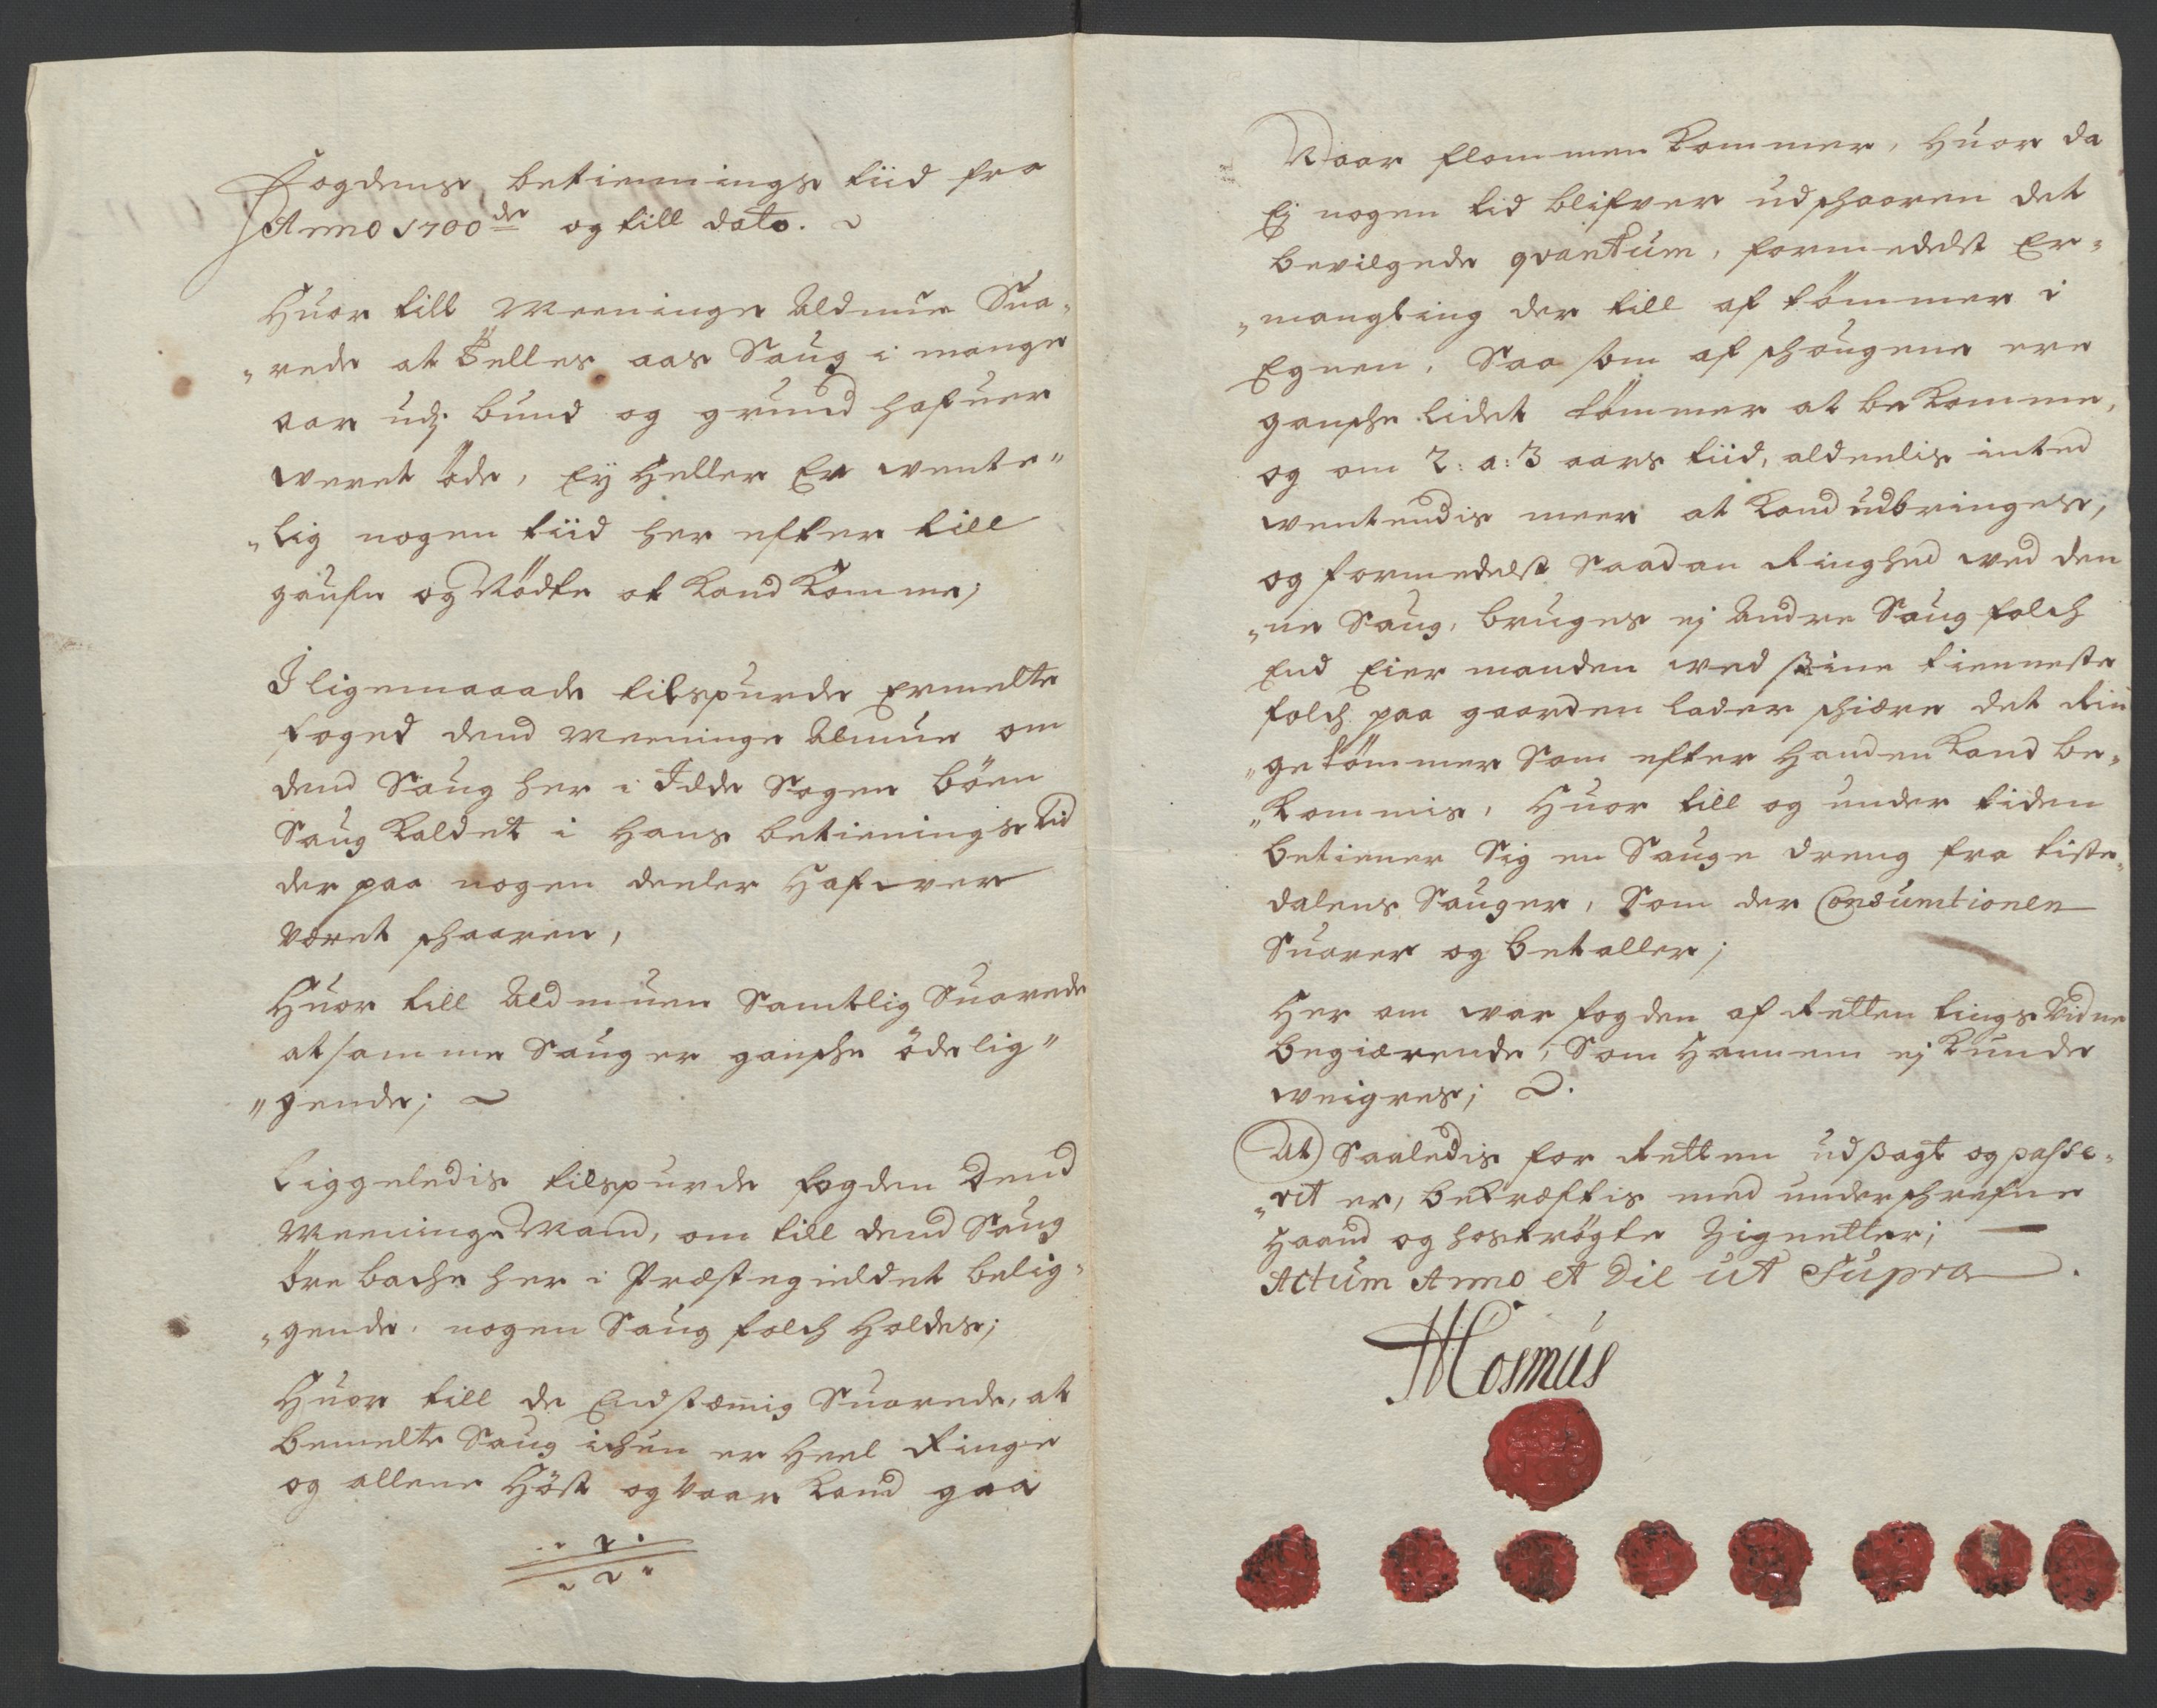 Fogdens betiennings tiid fra
Anno 1700de og till dato.
Huor till Meeninge Aldmue Sua„
„rede at Selles aas Saug i mange
aar udj bund og grund hafuer
weret öde, Eÿ Heller Er wente„
„lig nogen tiid her efter till
gaufn og Nödte at kand komme;
I ligemaaade tilspurde Ermelte
foged dend meeninge Almue om
dend Saug her i Idde Sogen böen
Saug kaldet i hans betienings tid
der paa nogen deeler Hafwer
väret schaaren,
Huor till Aldmuen Samtlig Suarede
at samme Saug er gansche ödelig„
„gende;
Liggeledis tilspurde fogden Dend
Meeninge Mand, om till dend Saug
öre bache her i Præstegieldet belig„
„gende, nogen Saug folch holdes;
Huor till de Endstæmig Suarede, at
bemelte Saug ichun er heel Ringe
og allene Höst og Vaar kand gaa
Naar flommen kommer, Huor da
Ej nogen tid blifver udschaaren det
bevilgede qvantum, formedelst Er„
„mangling der till af tömmer i
Egnen, Saa som af schougene ere
gansche lidet tömmer at bekomme,
og om 2: a: 3 aars tiid, aldeelis inted
wentendis meer at kand udbringes,
og formedelst Saadan Ringhed wed den
„ne Saug, bruges ej Andre Saug folch
End Eier manden med sine tienneste
folch paa gaarden lader schiære det Rin
„ge tömmer Som efter Handen kand be„
„kommis, Huor till og under tiden
betiener Sig en Sauge dreng fra tiste„
dalens Sauger, Som der Consumtionen
Suarer og betaller;
Her om war fogden af Retten tings Vidne
begiærende, Som Hannem ej kunde
weigres;
At Saaledis for Retten udsagt og passe„
„rit er, bekræftis med underschrefne
Haand og hoströgte Zignetter;
Actum Anno et Die ut Supra.
Mosmus